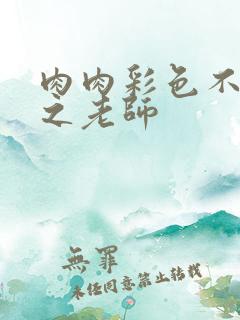 肉肉彩色不
之老師
無罪
未经同意禁止转载